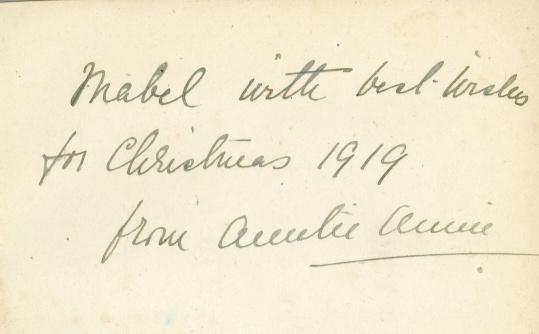 Mabel with best wishes
for Christmas 1919
from Auntie Annie